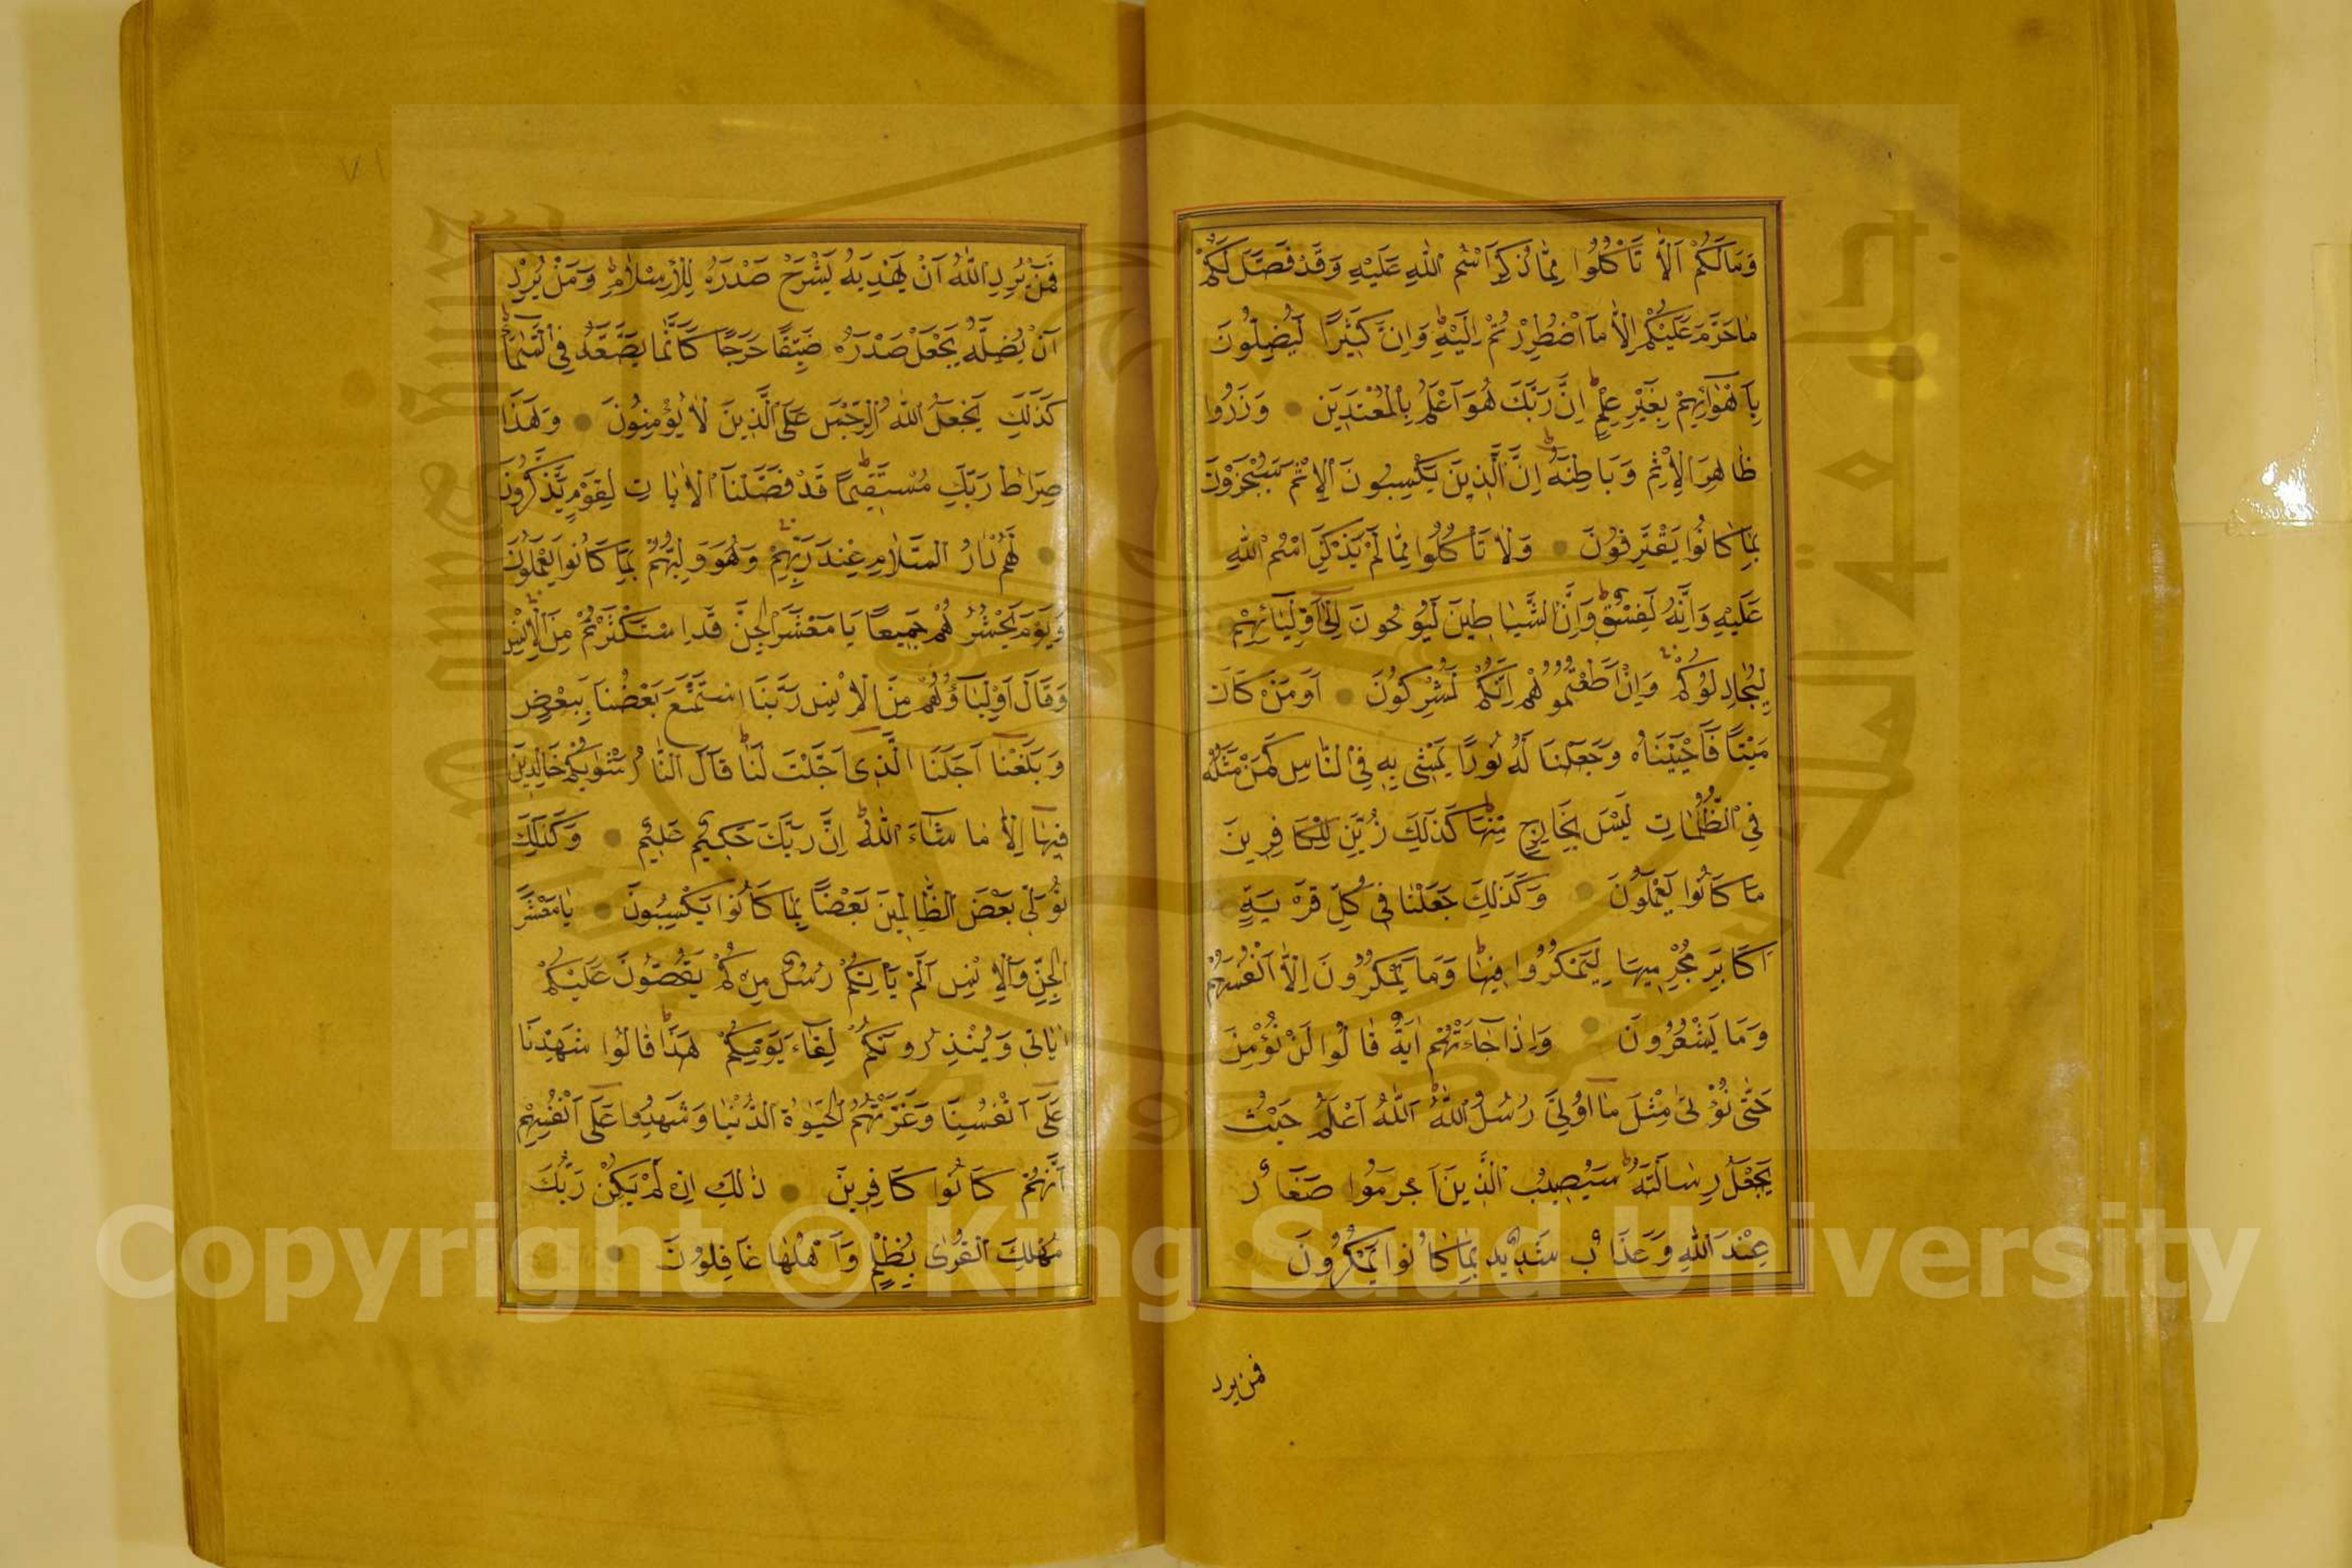 وَمَالَكُمْ اَلَّا تَأْكُلُوا مِمَّا ذُكِرَ اسْمُ اللّٰهِ عَلَيْهِ وَقَدْ فَصَّلَ لَكُمْ
مَا حَرَّمَ عَلَيْكُمْ اِلَّا مَا اضْطُرِرْتُمْ اِلَيْهِ وَاِنَّ كَثِيرًا لَيُضِلُّونَ
بِاَهْوَائِهِمْ بِغَيْرِ عِلْمٍ اِنَّ رَبَّكَ هُوَ اَعْلَمُ بِالْمُعْتَدِينَ وَذَرُوا
ظَاهِرَ الْاِثْمِ وَبَاطِنَهُ اِنَّ الَّذِينَ يَكْسِبُونَ الْاِثْمَ سَيُجْزَوْنَ
بِمَا كَانُوا يَقْتَرِفُونَ وَلَا تَأْكُلُوا مِمَّا لَمْ يُذْكَرِ اسْمُ اللّٰهِ
عَلَيْهِ وَاِنَّهُ لَفِسْقٌ وَاِنَّ الشَّيَاطِينَ لَيُوحُونَ اِلٰى اَوْلِيَائِهِمْ
لِيُجَادِلُوكُمْ وَاِنْ اَطَعْتُمُوهُمْ اِنَّكُمْ لَمُشْرِكُونَ اَوَمَنْ كَانَ
مَيْتًا فَاَحْيَيْنَاهُ وَجَعَلْنَا لَهُ نُورًا يَمْشِى بِهِ فِى النَّاسِ كَمَنْ مَثَلُهُ
فِى الظُّلُمَاتِ لَيْسَ بِخَارِجٍ مِنْهَا كَذٰلِكَ زُيِّنَ لِلْكَافِرِينَ
مَا كَانُوا يَعْمَلُونَ وَكَذٰلِكَ جَعَلْنَا فِى كُلِّ قَرْيَةٍ
اَكَابِرَ مُجْرِمِيهَا لِيَمْكُرُوا فِيهَا وَمَا يَمْكُرُونَ اِلَّا بِاَنْفُسِهِمْ
وَمَا يَشْعُرُونَ وَاِذَا جَاءَتْهُمْ اٰيَةٌ قَالُوا لَنْ نُؤْمِنَ
حَتّٰى نُؤْتٰى مِثْلَ مَا اُوتِىَ رُسُلُ اللّٰهِ اَللّٰهُ اَعْلَمُ حَيْثُ
يَجْعَلُ رِسَالَتَهُ سَيُصِيبُ الَّذِينَ اَجْرَمُوا صَغَارٌ
عِنْدَ اللّٰهِ وَعَذَابٌ شَدِيدٌ بِمَا كَانُوا يَمْكُرُونَ
فمن يرد
فَمَنْ يُرِدِ اللّٰهُ اَنْ يَهْدِيَهُ يَشْرَحْ صَدْرَهُ لِلْاِسْلَامِ وَمَنْ يُرِدْ
اَنْ يُضِلَّهُ يَجْعَلْ صَدْرَهُ ضَيِّقًا حَرَجًا كَاَنَّمَا يَصَّعَّدُ فِى السَّمَاءِ
كَذٰلِكَ يَجْعَلُ اللّٰهُ الرِّجْسَ عَلَى الَّذِينَ لَا يُؤْمِنُونَ وَهٰذَا
صِرَاطُ رَبِّكَ مُسْتَقِيمًا قَدْ فَصَّلْنَا الْاٰيَاتِ لِقَوْمٍ يَذَّكَّرُونَ
لَهُمْ دَارُ السَّلَامِ عِنْدَ رَبِّهِمْ وَهُوَ وَلِيُّهُمْ بِمَا كَانُوا يَعْمَلُونَ
وَيَوْمَ يَحْشُرُهُمْ جَمِيعًا يَا مَعْشَرَ الْجِنِّ قَدِ اسْتَكْثَرْتُمْ مِنَ الْاِنْسِ
وَقَالَ اَوْلِيَاؤُهُمْ مِنَ الْاِنْسِ رَبَّنَا اسْتَمْتَعَ بَعْضُنَا بِبَعْضٍ
وَبَلَغْنَا اَجَلَنَا الَّذِى اَجَّلْتَ لَنَا قَالَ النَّارُ مَثْوٰيكُمْ خَالِدِينَ
فِيهَا اِلَّا مَا شَاءَ اللّٰهُ اِنَّ رَبَّكَ حَكِيمٌ عَلِيمٌ وَكَذٰلِكَ
نُوَلِّى بَعْضَ الظَّالِمِينَ بَعْضًا بِمَا كَانُوا يَكْسِبُونَ يَا مَعْشَرَ
الْجِنِّ وَالْاِنْسِ اَلَمْ يَأْتِكُمْ رُسُلٌ مِنْكُمْ يَقُصُّونَ عَلَيْكُمْ
اٰيَاتِى وَيُنْذِرُونَكُمْ لِقَاءَ يَوْمِكُمْ هٰذَا قَالُوا شَهِدْنَا
عَلٰى اَنْفُسِنَا وَغَرَّتْهُمُ الْحَيٰوةُ الدُّنْيَا وَشَهِدُوا عَلٰى اَنْفُسِهِمْ
اَنَّهُمْ كَانُوا كَافِرِينَ ذٰلِكَ اَنْ لَمْ يَكُنْ رَبُّكَ
مُهْلِكَ الْقُرٰى بِظُلْمٍ وَاَهْلُهَا غَافِلُونَ
٧١
Copyright © King Saud University